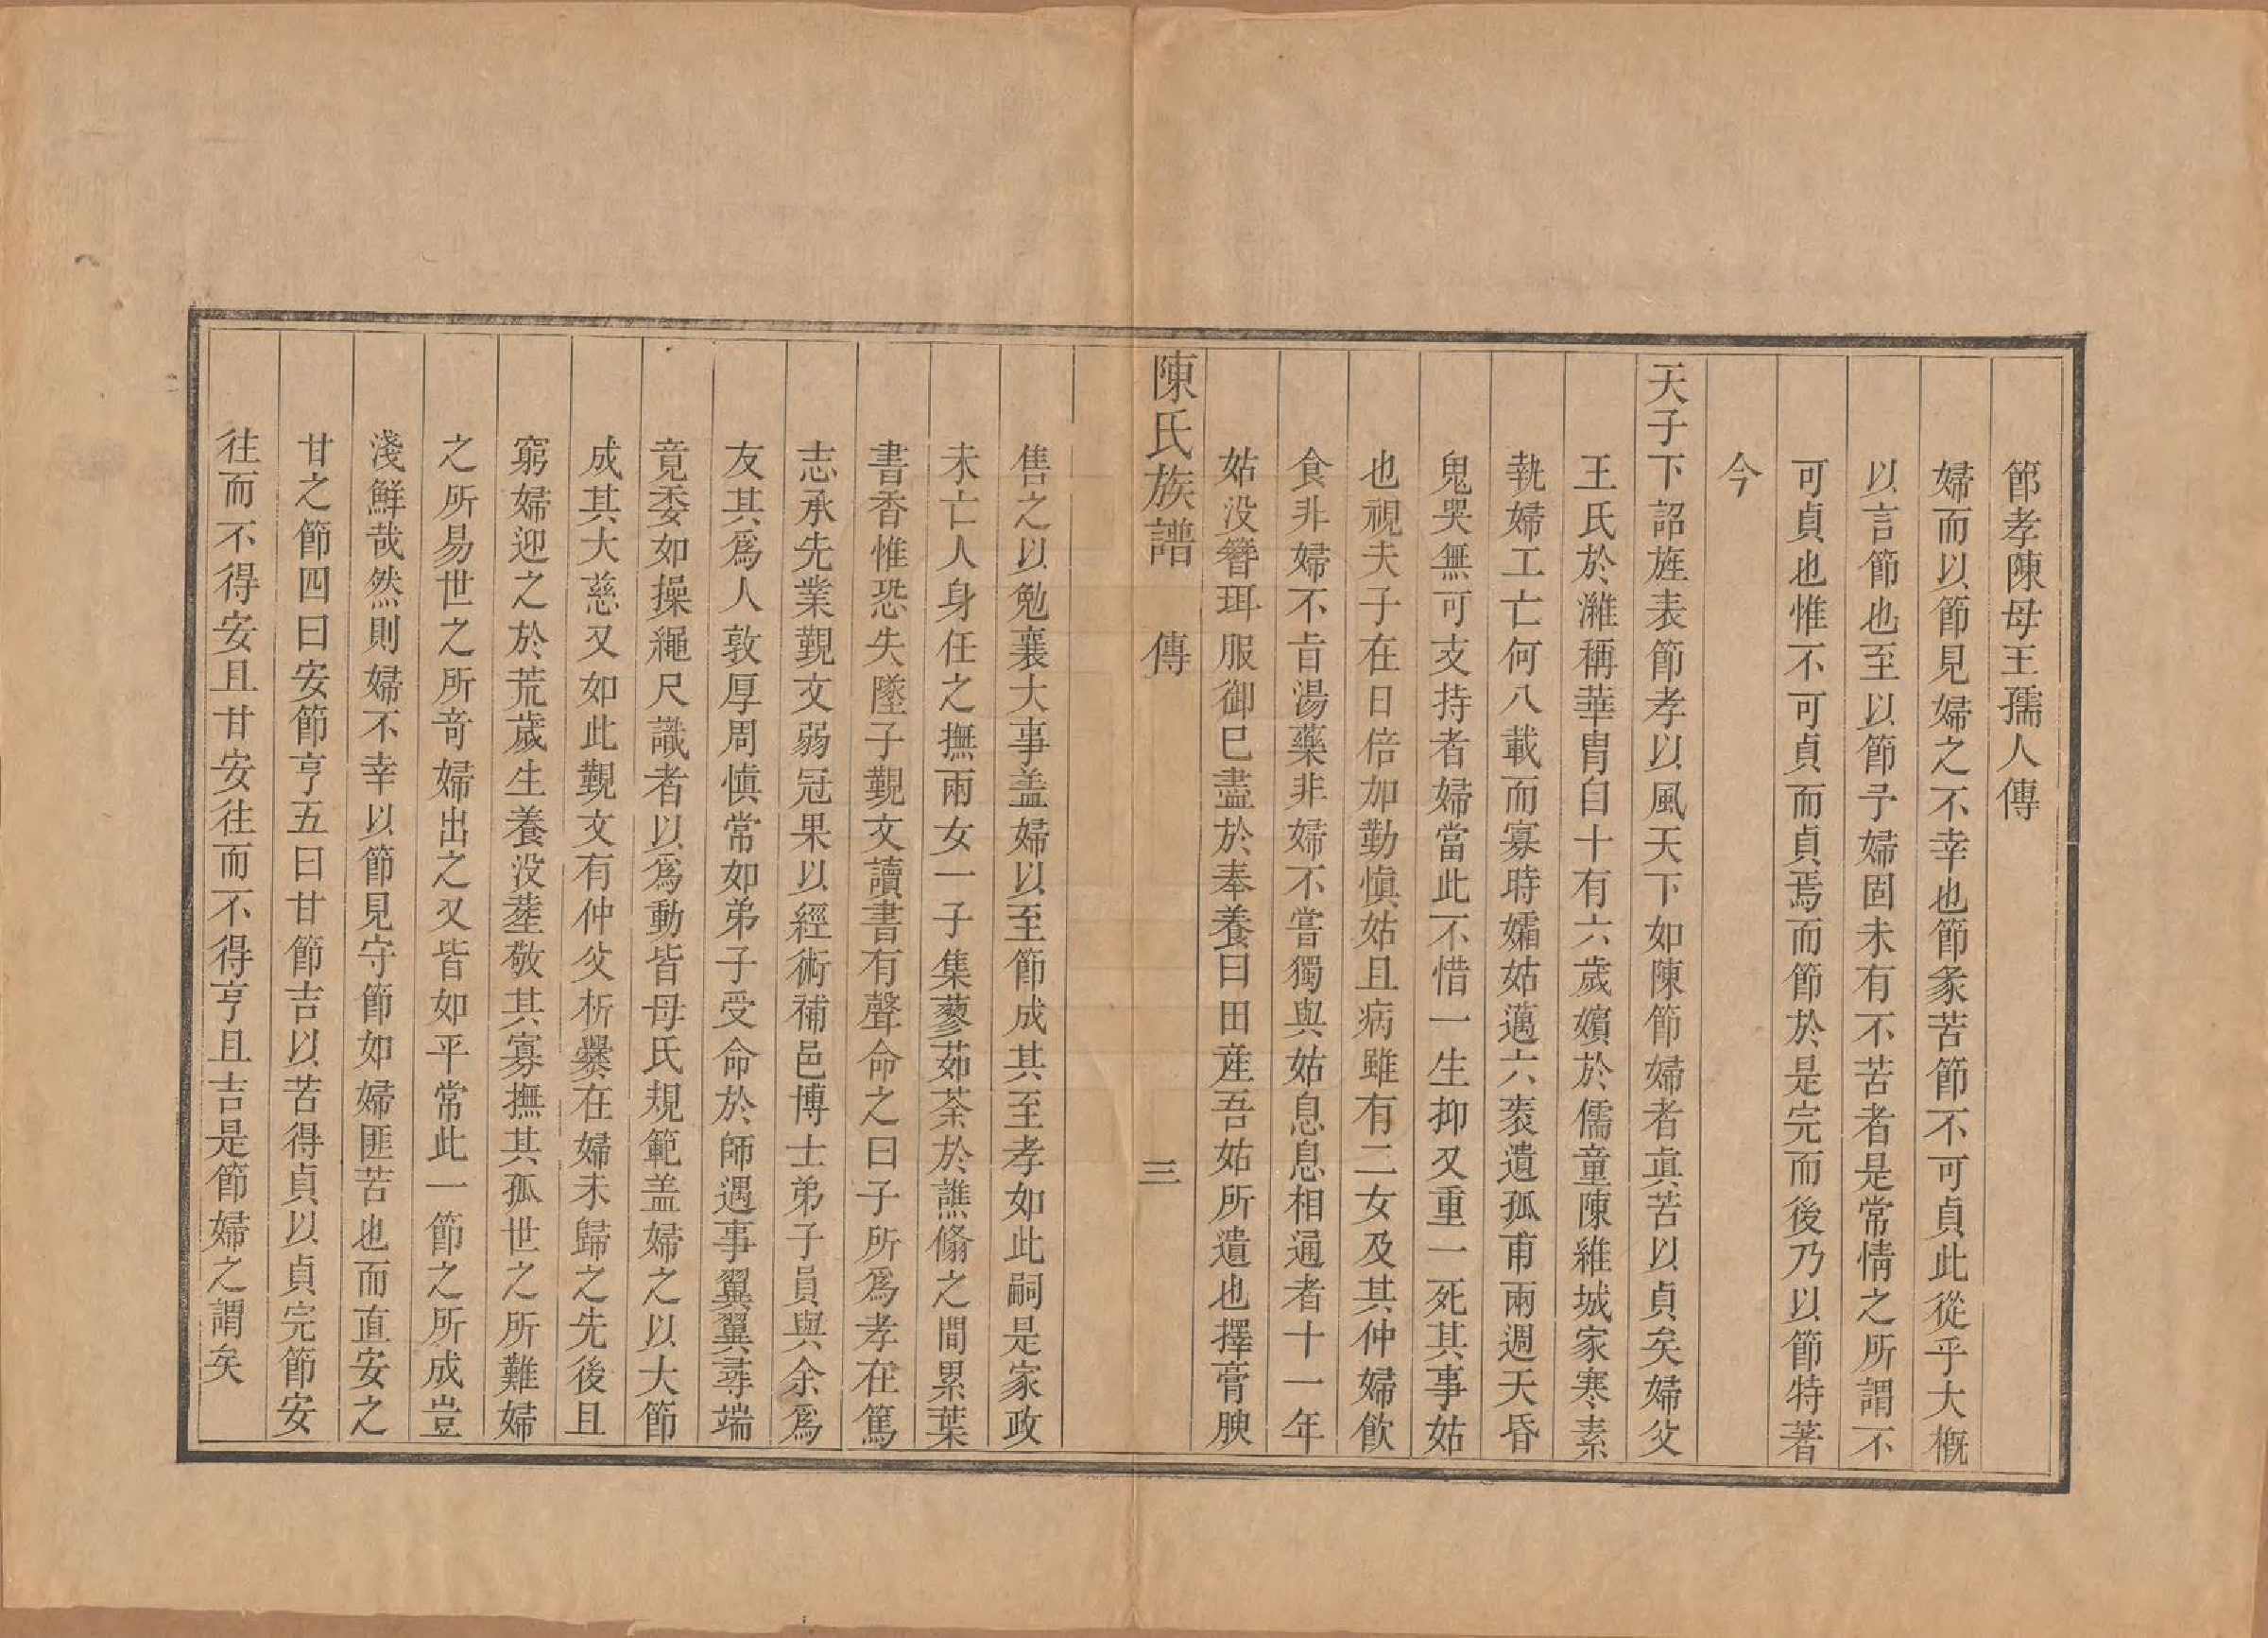 節孝陳母王孺人傳
婦而以節見婦之不幸也節彖苦節不可貞此從乎大槪
以言節也至以節予婦固未有不苦者是常情之所謂不
可貞也惟不可貞而貞焉而節於是完而後乃以節特著
今
天子下詔旌表節孝以風天下如陳節婦者眞苦以貞矣婦父
王氏於濰稱華胄自十有六歲嬪於儒童陳維城家寒素
執婦工亡何八載而寡時孀姑邁六袠遺孤甫兩週天昏
鬼哭無可支持者婦當此不惜一生抑又重一死其事姑
也視夫子在日倍加勤愼姑且病雖有二女及其仲婦飮
食非婦不旨湯藥非婦不嘗獨與姑息息相通者十一年
姑没簪珥服御已盡於奉養曰田産吾姑所遺也擇膏腴
陳氏族譜 傳 三
售之以勉襄大事盖婦以至節成其至孝如此嗣是家政
未亡人身任之撫兩女一子集蓼茹荼於譙翛之間累葉
書香惟恐失墜子覲文讀書有聲命之曰子所爲孝在篤
志承先業覲文弱冠果以經術補邑博士弟子員與余爲
友其爲人敦厚周愼常如弟子受命於師遇事翼翼尋端
竟委如操繩尺識者以爲動皆母氏規範盖婦之以大節
成其大慈又如此覲文有仲父析爨在婦未歸之先後且
窮婦迎之於荒歲生養没塟敬其寡撫其孤世之所難婦
之所易世之所奇婦出之又皆如平常此一節之所成豈
淺鮮哉然則婦不幸以節見守節如婦匪苦也而直安之
甘之節四曰安節亨五曰甘節吉以苦得貞以貞完節安
往而不得安且甘安往而不得亨且吉是節婦之謂矣